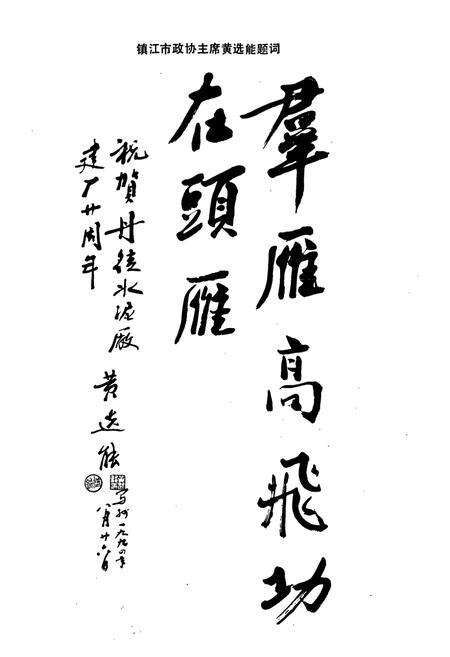 镇江市政协主席黄选能题词
羣雁高飛功
在頭雁
祝贺丹徒水泥廠
建厂廿周年
黄选能
一九九四年
八月廿六日